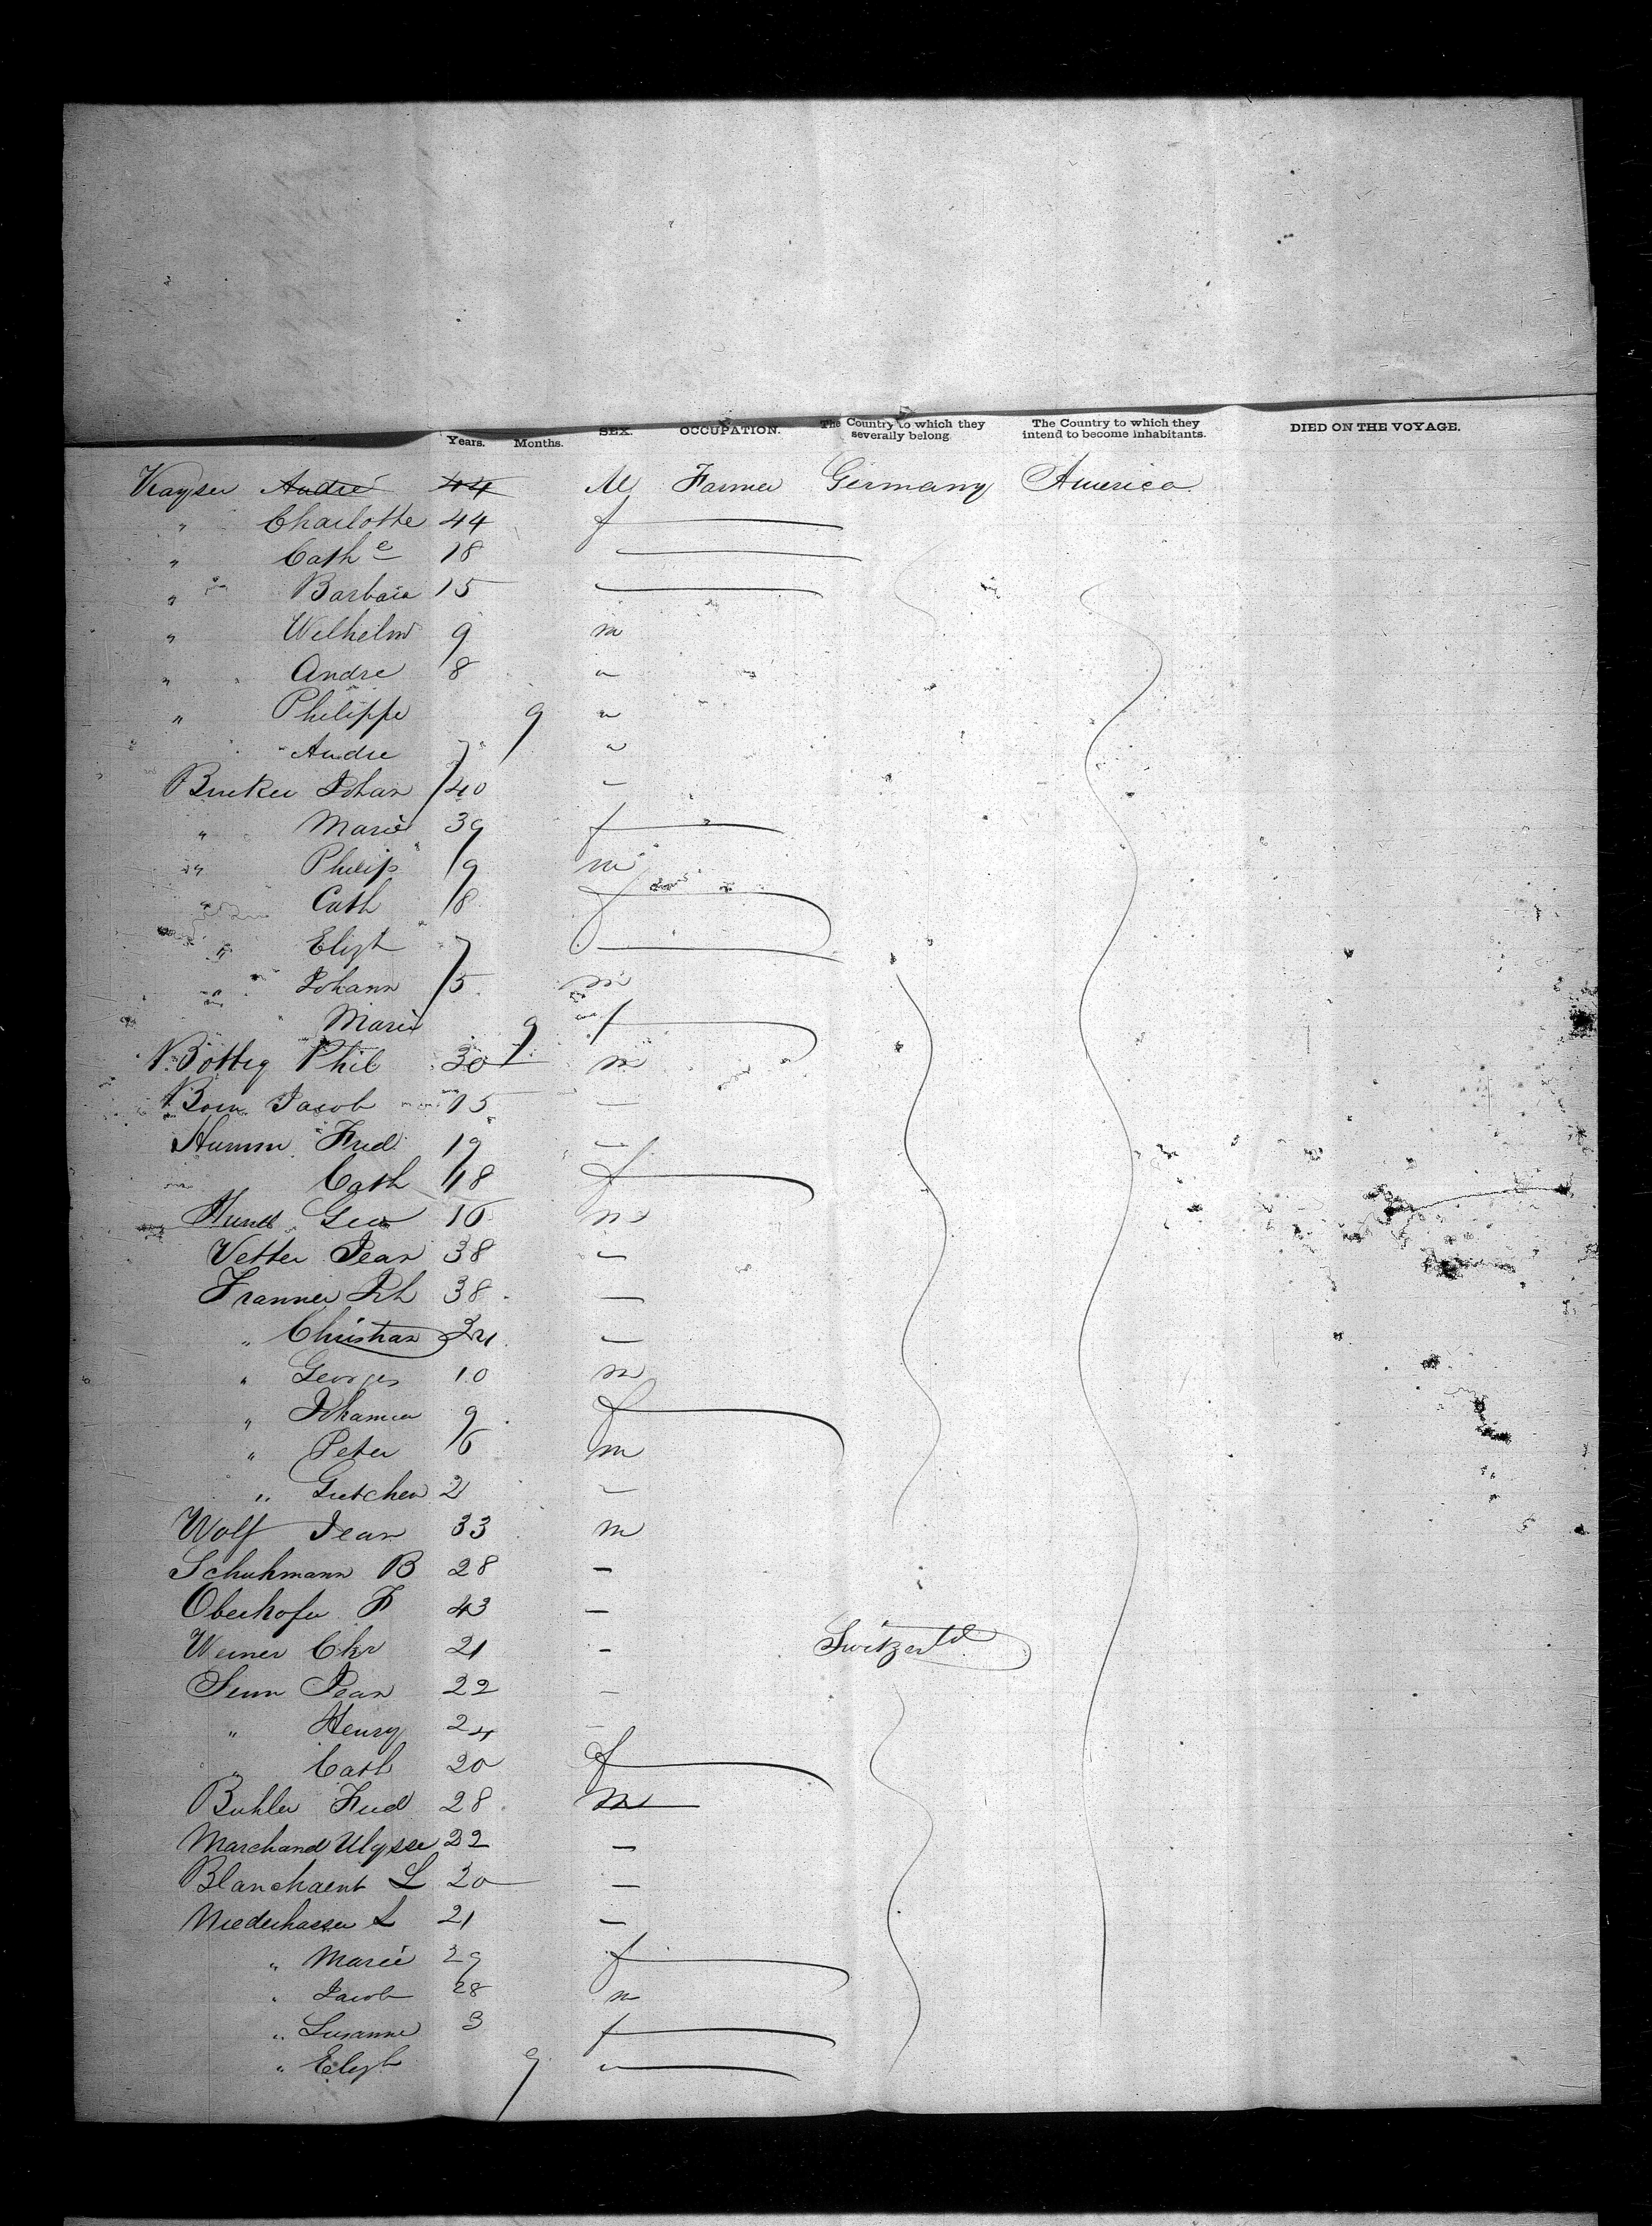 Years. Months. SEX. OCCUPATION. The Country to which they severally belong. The Country to which they intend to become inhabitants. DIED ON THE VOYAGE.
Kayser André 44 M Farmer Germany America
" Charlotte 44 f
" Cath e 18
" Barbara 15
" Wilhelm 9 m
" Andre 8 "
" Philippe 9 "
" Andre 7 "
Johan 40 –
" Marie 39 f
" Philip 9 m
" Cath 8 f
" Elizh 7
" Johann 5 m
" Marie 9 f
Bottig Phil 30 m
Born Jacob 15 –
Humm Fred 19 –
Cath 18 f
Hund Geo 16 m
Vetter Jean 38 –
Franner Joh 38 –
" Christian 34 –
" Georges 10 m
" Johanna 9 f
" Peter 6 m
" Gretchen 2 –
Wolf Jean 33 m
Schuhmann B 28 –
Oberhofer F 43 –
Werner Chr 21 – Switzerld
Senn Jean 22 –
" Henry 24 –
" Cath 20 f
Buhler Fred 28 m
Marchand Ulysse 22 –
L 20 –
L 21 –
" Marie 29 f
" Jacob 28 m
" Susanne 3 f
" Elizh 9 "